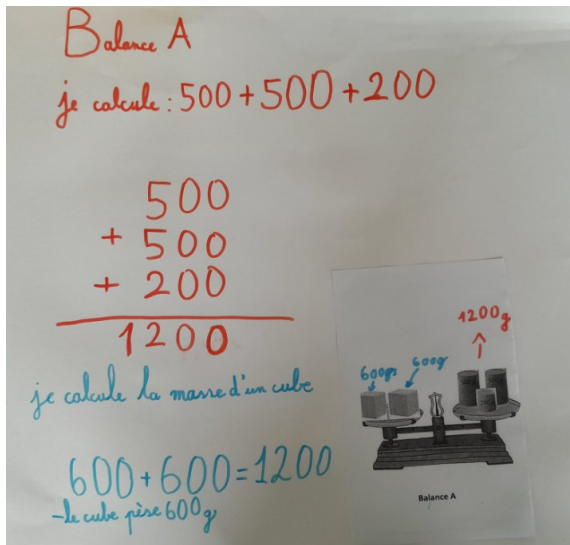 Balance A
je calcule : 500 + 500 + 200
500
+ 500
+ 200
1200
je calcule la masse d'un cube
600 + 600 = 1200
- le cube pèse 600g
1200g
600g 600g
Balance A